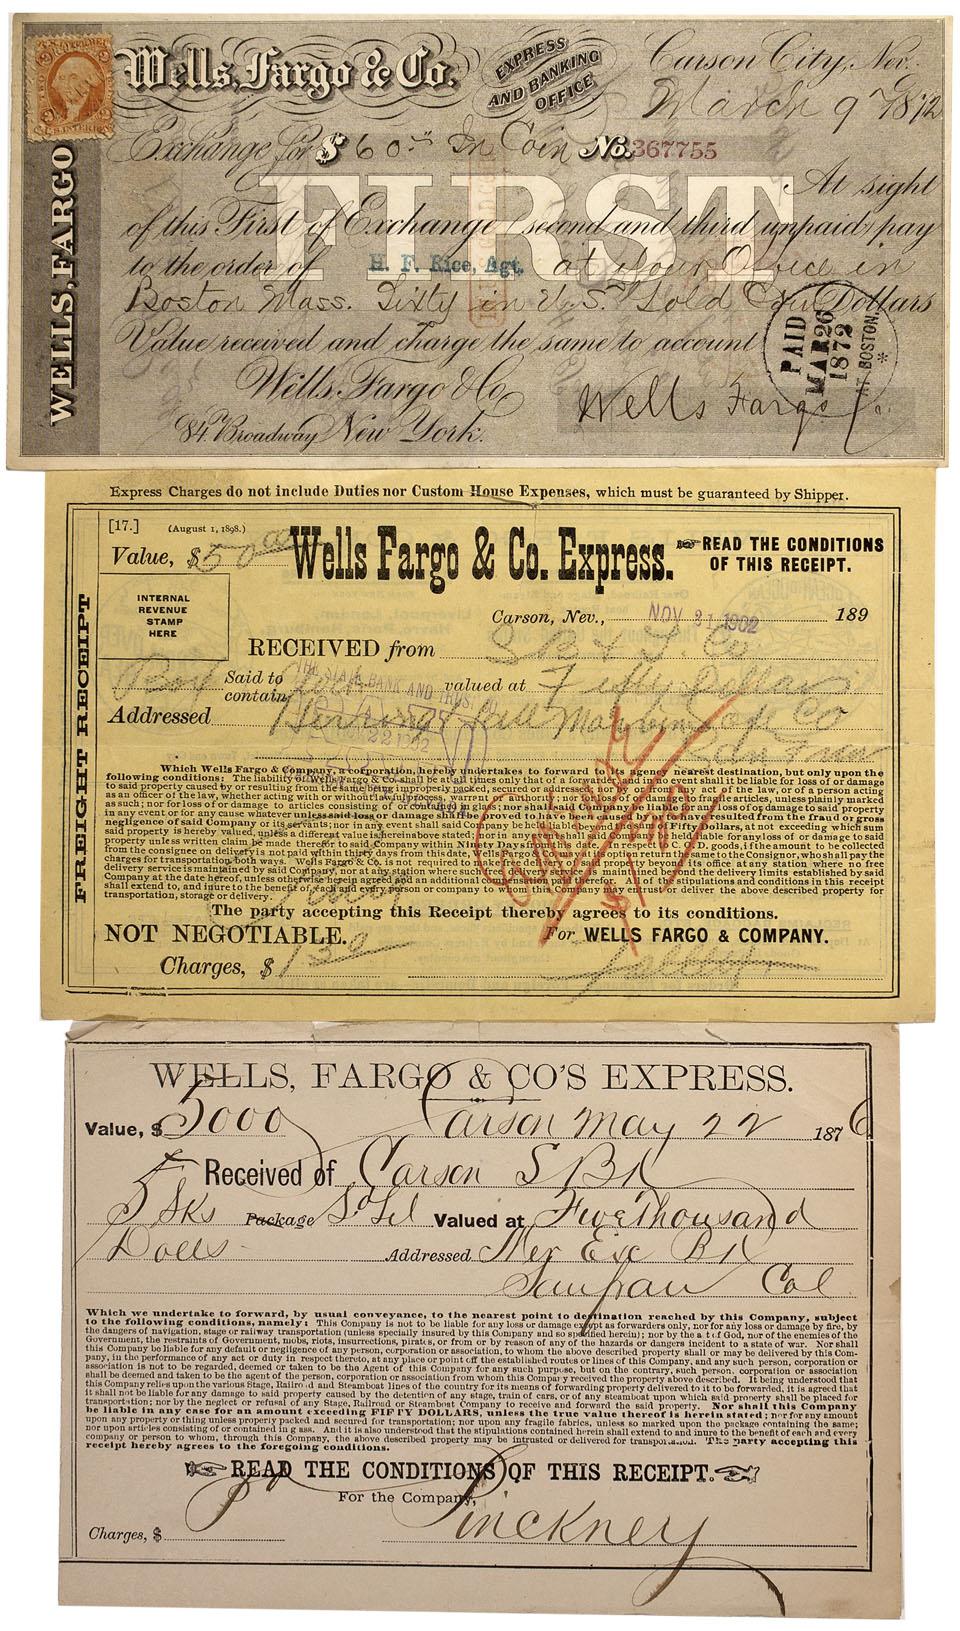 Wells, Fargo & Co.
EXPRESS
AND BANKING
OFFICE
Carson City, Nev.
March 9th 1872
WELLS, FARGO
Exchange for $ 60.00 In Coin No. 367755
FIRST
At sight
of this First of Exchange (second and third unpaid) pay
to the order of H. F. Rice, Agt. at your Office in
Boston Mass. Sixty in U.S. Gold Coin Dollars
Value received and charge the same to account
Wells, Fargo & Co
84 Broadway New York.
Wells Fargo Co.
PAID
MAR 26
1872
AT BOSTON.
Express Charges do not include Duties nor Custom House Expenses, which must be guaranteed by Shipper.
[17.] (August 1, 1898.)
Value, $50.00
Wells Fargo & Co. Express.
READ THE CONDITIONS
OF THIS RECEIPT.
INTERNAL
REVENUE
STAMP
HERE
FREIGHT RECEIPT
Carson, Nev., NOV 21 1902 189
RECEIVED from S B & T. Co
Said to contain valued at Fifty Dollars
THE STATE BANK AND TRUST CO
Addressed Herring Hall Marvin Safe Co
San Fran
Which Wells Fargo & Company, a corporation, hereby undertakes to forward to its agency nearest destination, but only upon the
following conditions: The liability of Wells Fargo & Co. shall be at all times only that of a forwarder, and in no event shall it be liable for loss of or damage
to said property caused by or resulting from the same being improperly packed, secured or addressed; nor by any act of the law, or of a person acting
as an officer of the law, whether acting with or without lawful process, warrant or authority; nor for loss of or damage to fragile articles, unless plainly marked
as such; nor for loss of or damage to articles consisting of or contained in glass; nor shall said Company be liable for loss of or damage to said property
in any event or for any cause whatever unless said loss or damage shall be proved to have been caused by or to have resulted from the fraud or gross
negligence of said Company or its servants; nor in any event shall said Company be held liable beyond the sum of Fifty Dollars, at not exceeding which sum
said property is hereby valued, unless a different value is hereinabove stated; nor in any event shall said Company be liable for any loss of or damage to said
property unless written claim be made therefor to said Company within Ninety Days from this date. In respect to C. O. D. goods, if the amount to be collected
from the consignee on delivery is not paid within thirty days from this date, Wells Fargo & Co. may at its option return the same to the Consignor, who shall pay the
charges for transportation both ways. Wells Fargo & Co. is not required to make free delivery of said property beyond its office at any station where no free
delivery service is maintained by said Company, nor at any station where such service is maintained beyond the delivery limits established by said
Company at the date hereof, unless otherwise herein agreed and an additional compensation paid therefor. All of the stipulations and conditions in this receipt
shall extend to, and inure to the benefit of, each and every person or company to whom this Company may entrust or deliver the above described property for
transportation, storage or delivery.
The party accepting this Receipt thereby agrees to its conditions.
NOT NEGOTIABLE. For WELLS FARGO & COMPANY.
Charges, $ 1.30
WELLS, FARGO & CO'S EXPRESS.
Value, $ 5000 Carson May 22 1876
Received of Carson S Bk
5 Sks Package Valued at Five Thousand
Dolls Addressed Ner Exc Bk
Sanfran Cal
Which we undertake to forward, by usual conveyance, to the nearest point to destination reached by this Company, subject
to the following conditions, namely: This Company is not to be liable for any loss or damage except as forwarders only, nor for any loss or damage by fire, by
the dangers of navigation, stage or railway transportation (unless specially insured by this Company and so specified herein); nor by the act of God, nor of the enemies of the
Government, the restraints of Government, mobs, riots, insurrections, pirates, or from or by reason of any of the hazards or dangers incident to a state of war. Nor shall
this Company be liable for any default or negligence of any person, corporation or association, to whom the above described property shall or may be delivered by this Com-
pany, in the performance of any act or duty in respect thereto, at any place or point off the established routes or lines of this Company, and any such person, corporation or
association is not to be regarded, deemed or taken to be the Agent of this Company for any such purpose, but on the contrary, such person, corporation or association
shall be deemed and taken to be the agent of the person, corporation or association from whom this Company received the property above described. It being understood that
this Company relies upon the various Stage, Railroad and Steamboat lines of the country for its means of forwarding property delivered to it to be forwarded, it is agreed that
it shall not be liable for any damage to said property caused by the detention of any stage, train of cars, or of any steamboat upon which said property shall be placed for
transportation; nor by the neglect or refusal of any Stage, Railroad or Steamboat Company to receive and forward the said property. Nor shall this Company
be liable in any case for an amount exceeding FIFTY DOLLARS, unless the true value thereof is herein stated; nor for any amount
upon any property or thing unless properly packed and secured for transportation; nor upon any fragile fabrics, unless so marked upon the package containing the same;
nor upon articles consisting of or contained in glass. And it is also understood that the stipulations contained herein shall extend to and inure to the benefit of each and every
company or person to whom, through this Company, the above described property may be intrusted or delivered for transportation. The party accepting this
receipt hereby agrees to the foregoing conditions.
READ THE CONDITIONS OF THIS RECEIPT.
For the Company,
Pinckney
Charges, $